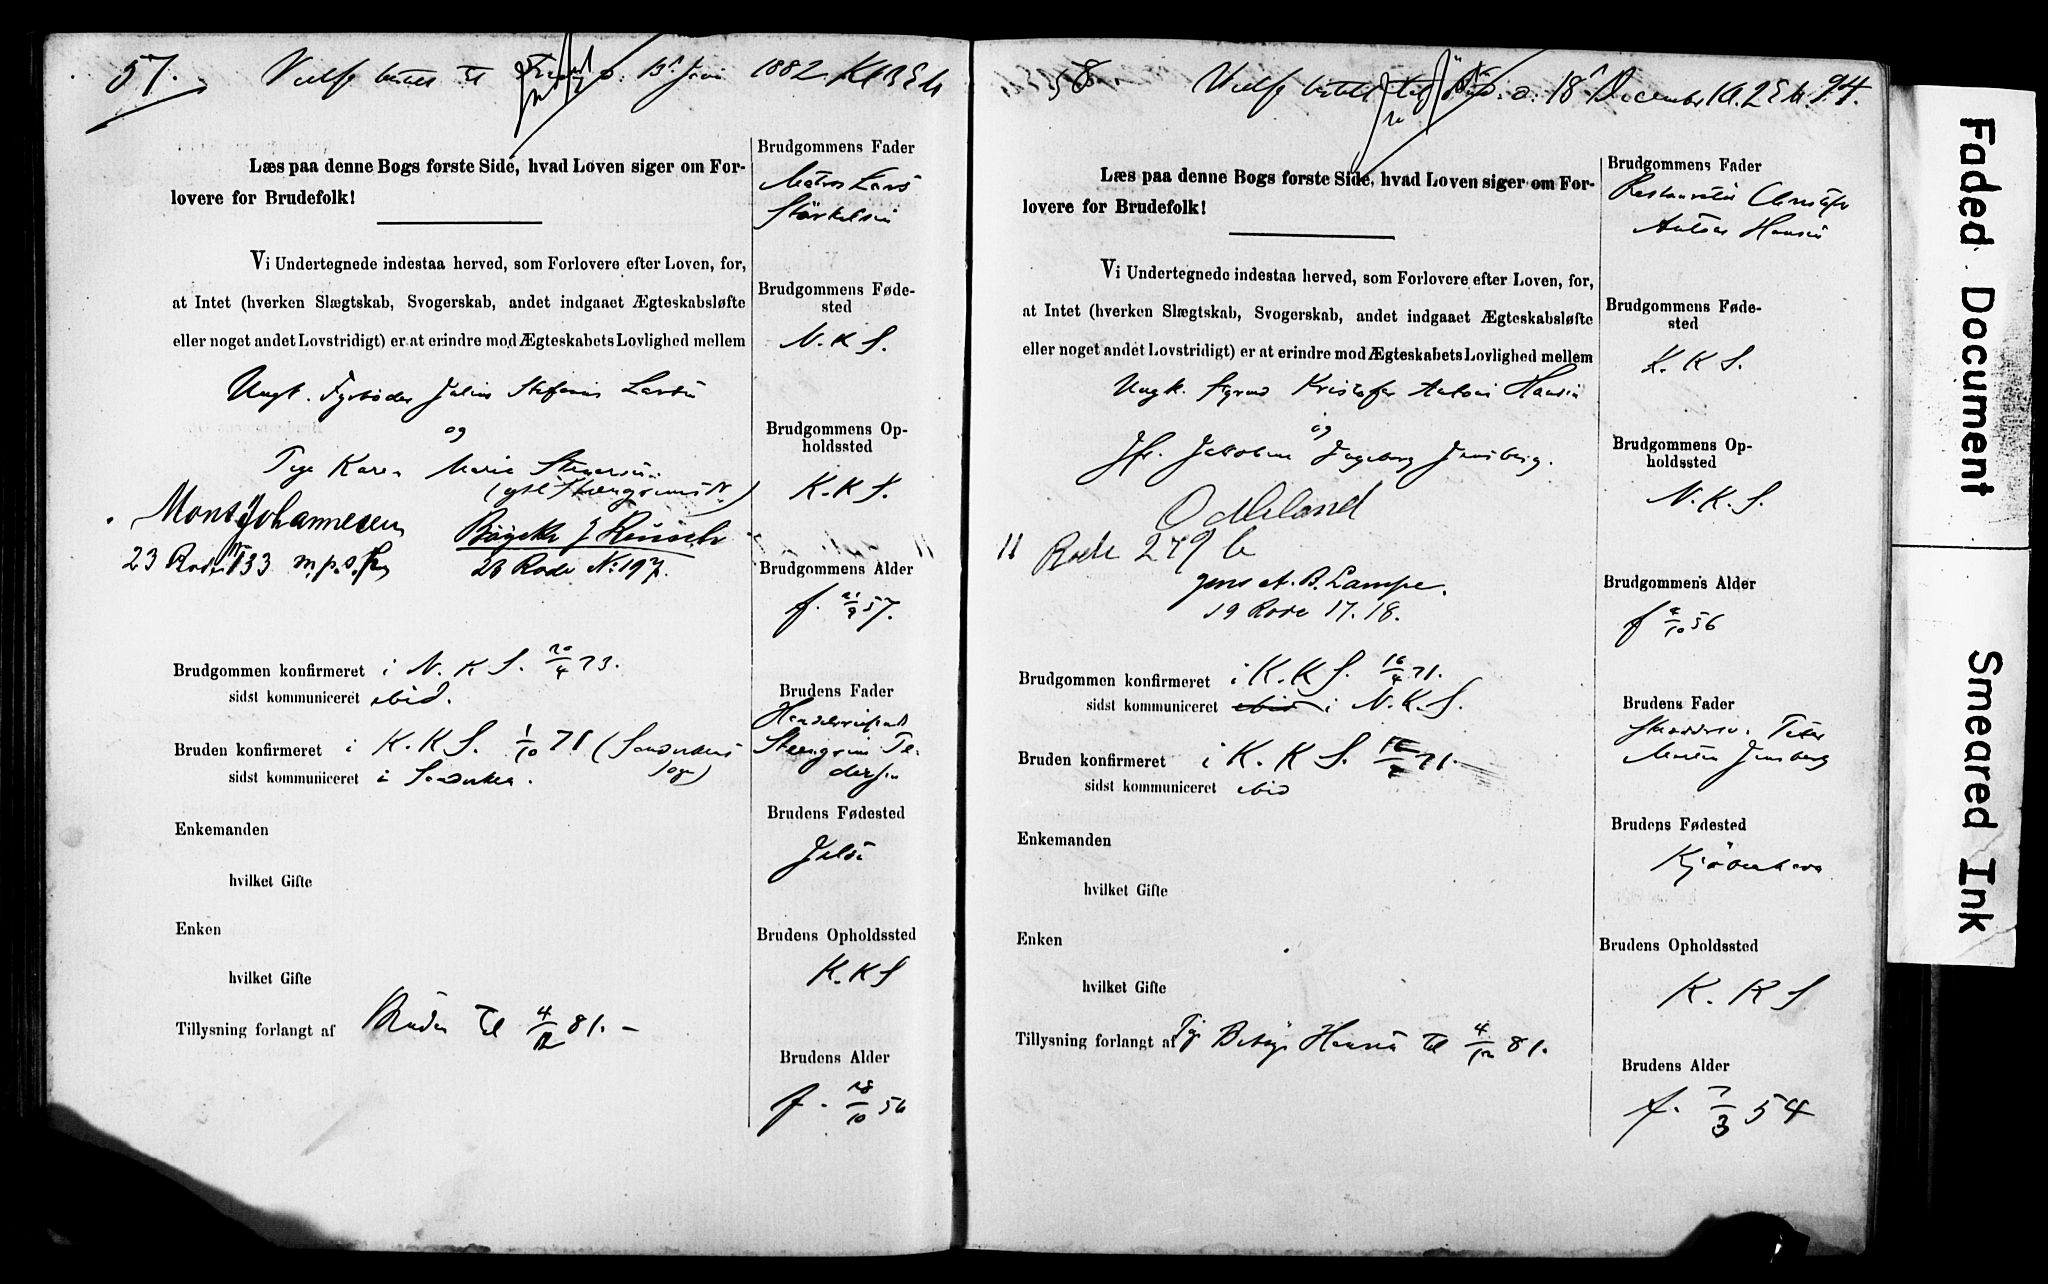 57.
Vielse bestilt til
1882 Kl 3 Em
Læs paa denne Bogs første Side, hvad Loven siger om For-
lovere for Brudefolk!
Vi Undertegnede indestaa herved, som Forlovere efter Loven, for,
at Intet (hverken Slægtskab, Svogerskab, andet indgaaet Ægteskabsløfte
eller noget andet Lovstridigt) er at erindre mod Ægteskabets Lovlighed mellem
Ungk. Fyrbøder Julius Stefanus Larsen
og
Pige Karen Marie
Mons Johannesen
23 Rode No 133 m. p. s. Pen
23 Rode No 197.
Brudgommen konfirmeret i N. K. S. 20/4 73.
sidst kommuniceret ibid.
Bruden konfirmeret i K. K. S. 1/10 71 (Sandvikens
sogn)
sidst kommuniceret i Sandviken.
Enkemanden
hvilket Gifte
Enken
hvilket Gifte
Tillysning forlangt af Bruden til 4/12 81. –
Brudgommens Fader
Matros Lars
Størkelsen
BrudgommensFøde-
sted
N. K. S.
Brudgommens Op-
holdssted
K. K. S.
Brudgommens Alder
f. 21/9 57.
Brudens Fader
Steengrim Pe-
dersen
Brudens Fødested
Jelse
Brudens Opholdssted
K. K S
Brudens Alder
f. 28/10 56
58
Vielse bestilt til
d. 18 December Kl. 2 Em.
94.
Læs paa denne Bogs første Side, hvad Loven siger om For-
lovere for Brudefolk!
Vi Undertegnede indestaa herved, som Forlovere efter Loven, for,
at Intet (hverken Slægtskab, Svogerskab, andet indgaaet Ægteskabsløfte
eller noget andet Lovstridigt) er at erindre mod Ægteskabets Lovlighed mellem
Ungk. Styrmd Kristofer Antoni Hansen
og
Jfr. Jakobine Ingeborg Jensberg.
O Meland
11 Rode 279 b
Jens A. B. Lampe.
19 Rode 17. 18.
Brudgommen konfirmeret i K. K S. 16/4 71.
sidst kommuniceret ibid i N. K. S.
Bruden konfirmeret i K. K S. 71.
sidst kommuniceret ibid
Enkemanden
hvilket Gifte
Enken
hvilket Gifte
Tillysning forlangt af Pige Hansen til 4/12 81.
Brudgommens Fader
Restauratør Christofer
Hansen
Brudgommens Føde-
sted
K. K S.
Brudgommens Op-
holdssted
N. K. S.
Brudgommens Alder
f 4/10 56
Brudens Fader
Peter
Martin Jensberg
Brudens Fødested
Kjøbenhavn
Brudens Opholdssted
K. K S
Brudens Alder
f. 7/3 54
Faded Document
Smeared Ink